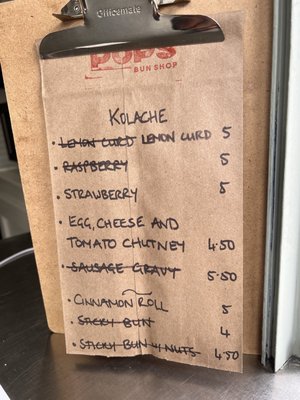 Officemate
POPS
BUN SHOP
KOLACHE
• LEMON CURD LEMON CURD 5
• RASPBERRY 5
• STRAWBERRY 5
• EGG, CHEESE AND
TOMATO CHUTNEY 4.50
• SAUSAGE GRAVY 5.50
• CINNAMON ROLL 5
• STICKY BUN 4
• STICKY BUN W/ NUTS 4.50